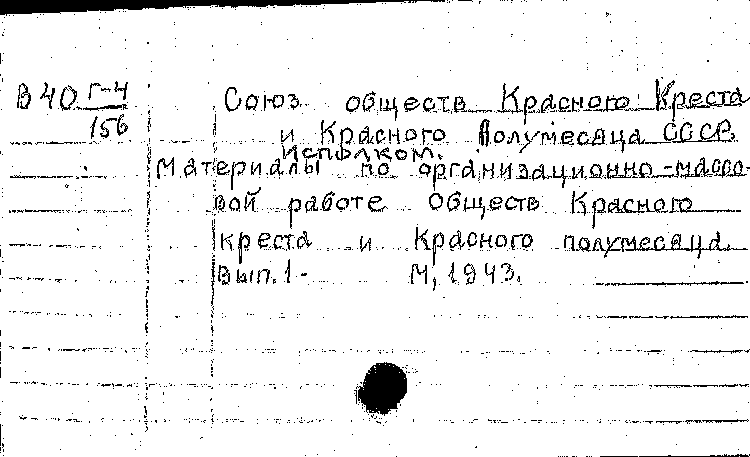 В 40 Г-4
156
Союз обществ Красного Креста
и Красного Полумесяца СССР.
Исполком.
Материалы по организационно-массо-
вой работе обществ Красного
креста и Красного полумесяца.
Вып. 1- М, 1943.